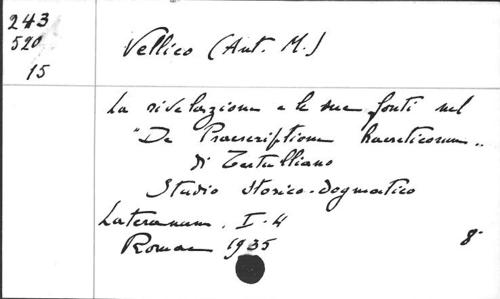 243
520
15
Vellico (Ant. M.)
La rivelazione e le sue fonti nel
"De Praescriptione haereticorum"
di Tertulliano
Studio storico-dogmatico
Lateranum. I-4
Romae 1935 8°